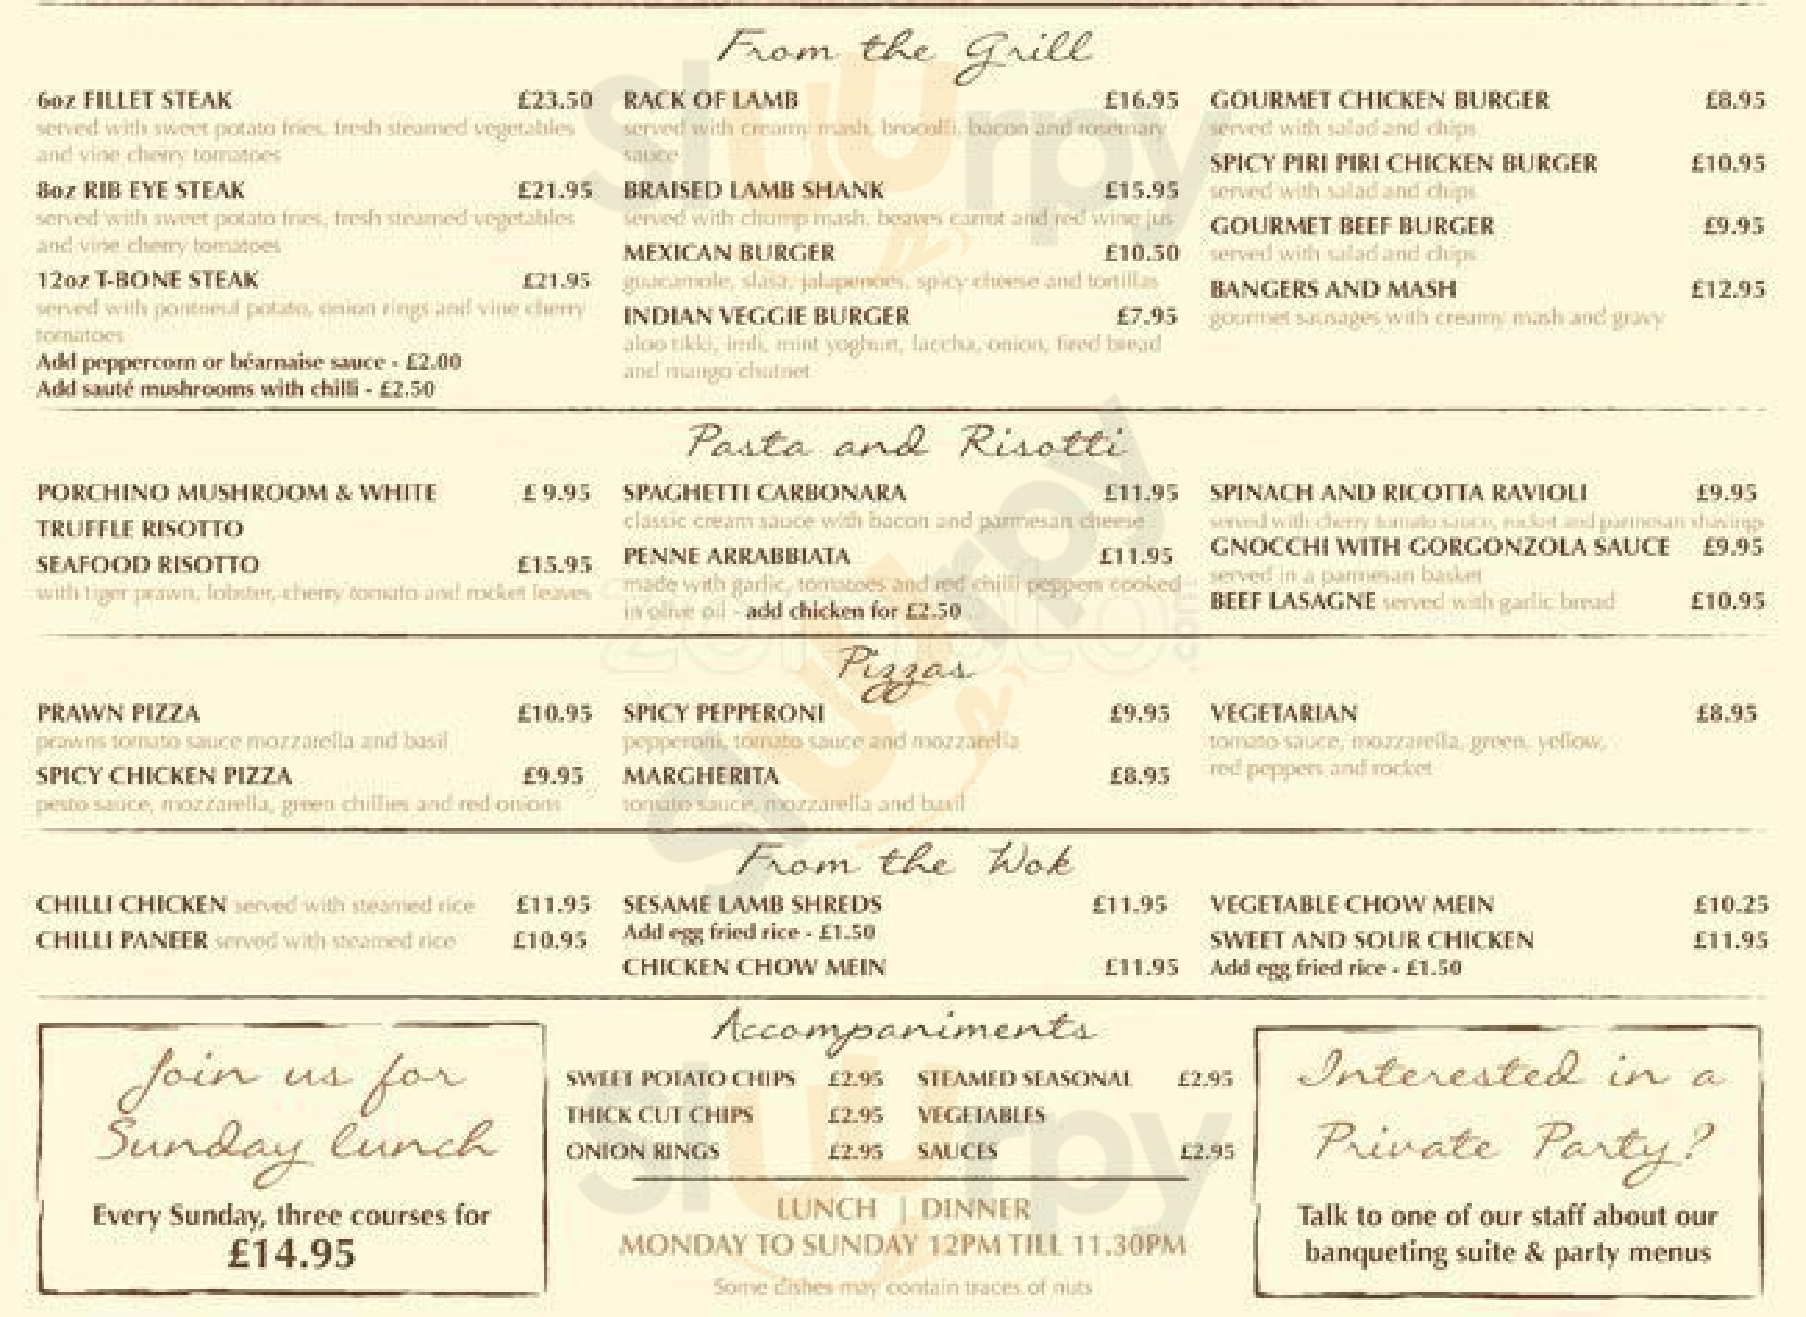 From the Grill
6oz FILLET STEAK £23.50
served with sweet potato fries, fresh steamed vegetables
and vine cherry tomatoes
8oz RIB EYE STEAK £21.95
served with sweet potato fries, fresh steamed vegetables
and vine cherry tomatoes
12oz T-BONE STEAK £21.95
served with pontneuf potato, onion rings and vine cherry
tomatoes
Add peppercorn or béarnaise sauce - £2.00
Add sauté mushrooms with chilli - £2.50
RACK OF LAMB £16.95
served with creamy mash, brocolli, bacon and rosemary
sauce
BRAISED LAMB SHANK £15.95
served with chump mash, beaves carrot and red wine jus
MEXICAN BURGER £10.50
guacamole, slasa, jalapenoes, spicy cheese and tortillas
INDIAN VEGGIE BURGER £7.95
aloo tikki, imli, mint yoghurt, laccha, onion, fired bread
and mango chutnet
GOURMET CHICKEN BURGER £8.95
served with salad and chips
SPICY PIRI PIRI CHICKEN BURGER £10.95
served with salad and chips
GOURMET BEEF BURGER £9.95
served with salad and chips
BANGERS AND MASH £12.95
gourmet sausages with creamy mash and gravy
Pasta and Risotti
PORCHINO MUSHROOM & WHITE £ 9.95
TRUFFLE RISOTTO
SEAFOOD RISOTTO £15.95
with tiger prawn, lobster, cherry tomato and rocket leaves
SPAGHETTI CARBONARA £11.95
classic cream sauce with bacon and parmesan cheese
PENNE ARRABBIATA £11.95
made with garlic, tomatoes and red chilli peppers cooked
in olive oil - add chicken for £2.50
SPINACH AND RICOTTA RAVIOLI £9.95
served with cherry tomato sauce, rocket and parmesan shavings
GNOCCHI WITH GORGONZOLA SAUCE £9.95
served in a parmesan basket
BEEF LASAGNE served with garlic bread £10.95
Pizzas
PRAWN PIZZA £10.95
prawns tomato sauce mozzarella and basil
SPICY CHICKEN PIZZA £9.95
pesto sauce, mozzarella, green chillies and red onions
SPICY PEPPERONI £9.95
pepperoni, tomato sauce and mozzarella
MARGHERITA £8.95
tomato sauce, mozzarella and basil
VEGETARIAN £8.95
tomato sauce, mozzarella, green, yellow,
red peppers and rocket
From the Wok
CHILLI CHICKEN served with steamed rice £11.95
CHILLI PANEER served with steamed rice £10.95
SESAME LAMB SHREDS £11.95
Add egg fried rice - £1.50
CHICKEN CHOW MEIN £11.95
VEGETABLE CHOW MEIN £10.25
SWEET AND SOUR CHICKEN £11.95
Add egg fried rice - £1.50
Join us for
Sunday lunch
Every Sunday, three courses for
£14.95
Accompaniments
SWEET POTATO CHIPS £2.95
THICK CUT CHIPS £2.95
ONION RINGS £2.95
STEAMED SEASONAL £2.95
VEGETABLES
SAUCES £2.95
LUNCH | DINNER
MONDAY TO SUNDAY 12PM TILL 11.30PM
Some dishes may contain traces of nuts
Interested in a
Private Party?
Talk to one of our staff about our
banqueting suite & party menus
Sluurpy
Sluurpy
Sluurpy
zomato.com